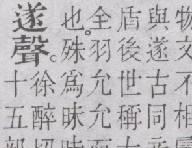 物文不相
與遂古同
盾後世稱
全羽允允
也。殊爲昧
遂聲。徐醉切
十五部